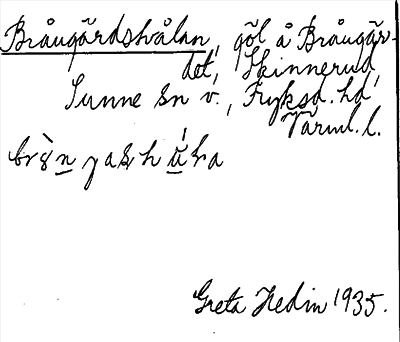 Bråugärdshålan, göl å Bråugär-
det, Skinnerud,
Sunne sn v., Fryksd. hd,
Värml. l.
Greta Hedin 1935.